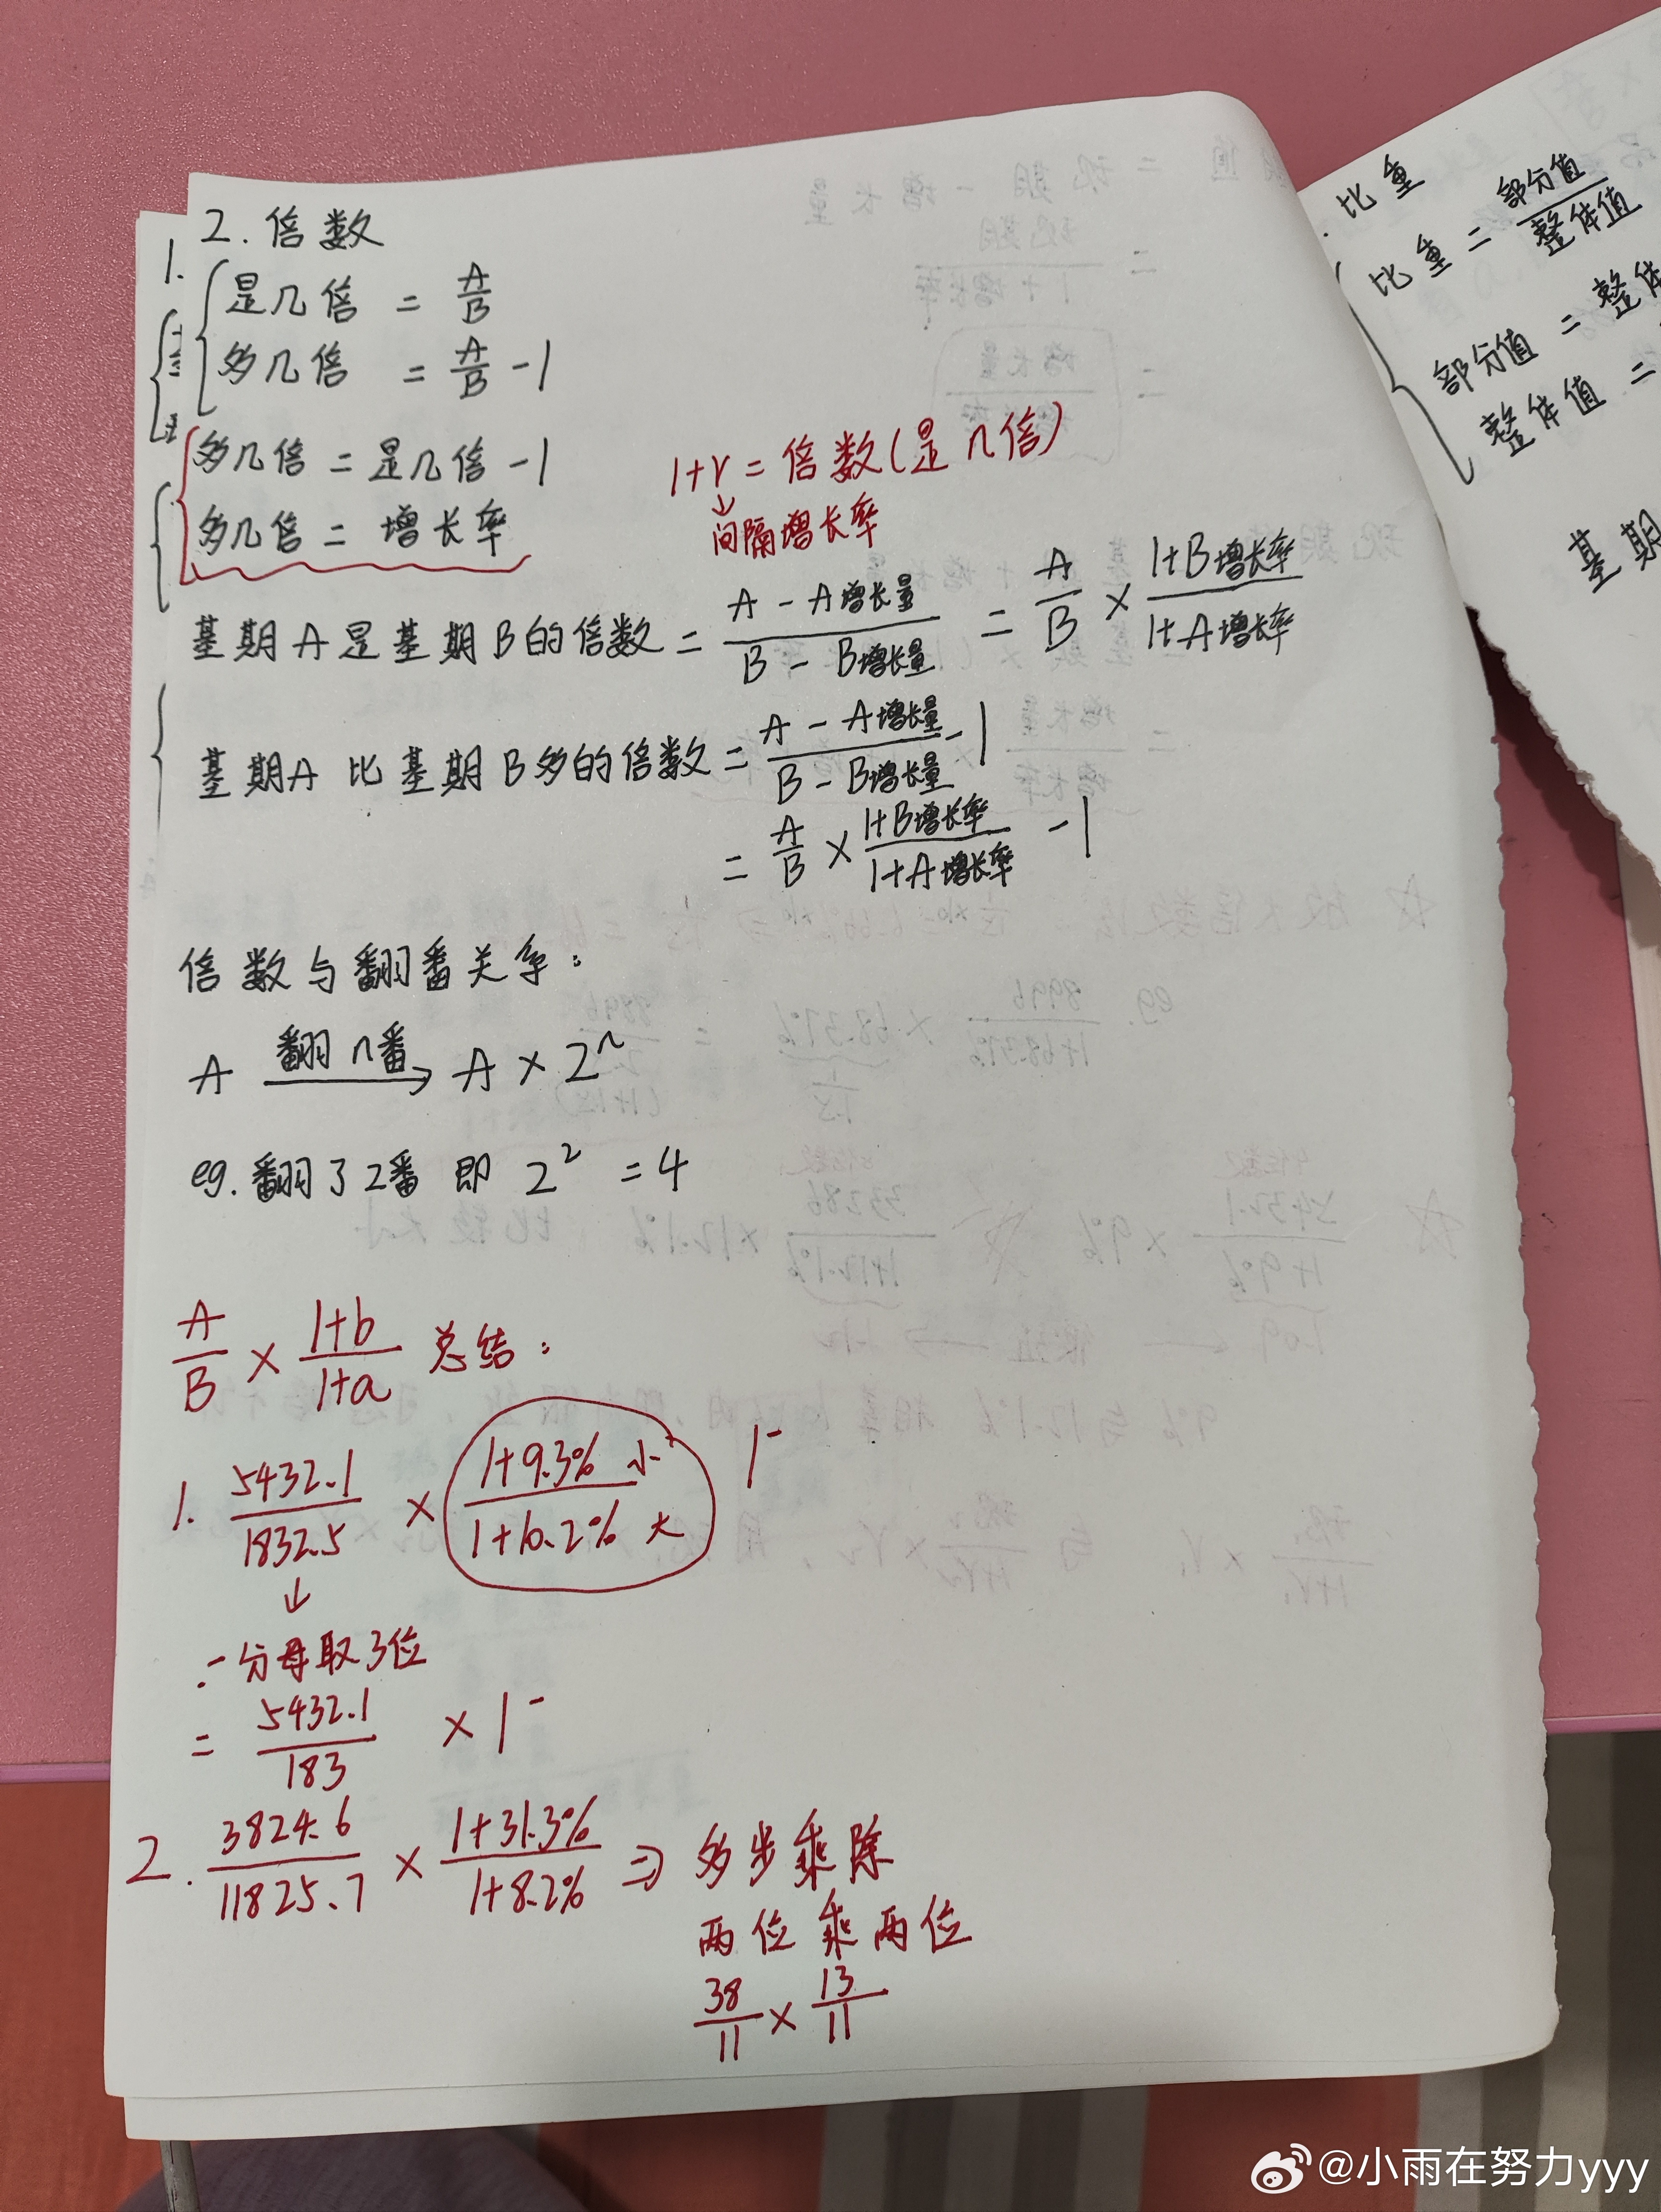 2. 倍数
1.
是几倍 = A/B
多几倍 = A/B - 1
多几倍 = 是几倍 - 1
多几倍 = 增长率
1+r = 倍数(是几倍)
↓
间隔增长率
基期A是基期B的倍数 = (A - A增长量)/(B - B增长量) = A/B × (1+B增长率)/(1+A增长率)
基期A 比基期B多的倍数 = (A - A增长量)/(B - B增长量) - 1
= A/B × (1+B增长率)/(1+A增长率) - 1
倍数与翻番关系:
A 翻n番→ A × 2ⁿ
eg. 翻了2番 即 2² = 4
A/B × (1+b)/(1+a) 总结:
1. 5432.1/1832.5 × (1+9.3% 小)/(1+10.2% 大) 1⁻
↓
分母取3位
= 5432.1/183 × 1⁻
2. 3824.6/11825.7 × (1+31.3%)/(1+8.2%) ⇒ 多步乘除
两位乘两位
38/11 × 13/11
比重
比重 = 部分值/整体值
部分值 = 整体
整体值 =
基期
@小雨在努力yyy